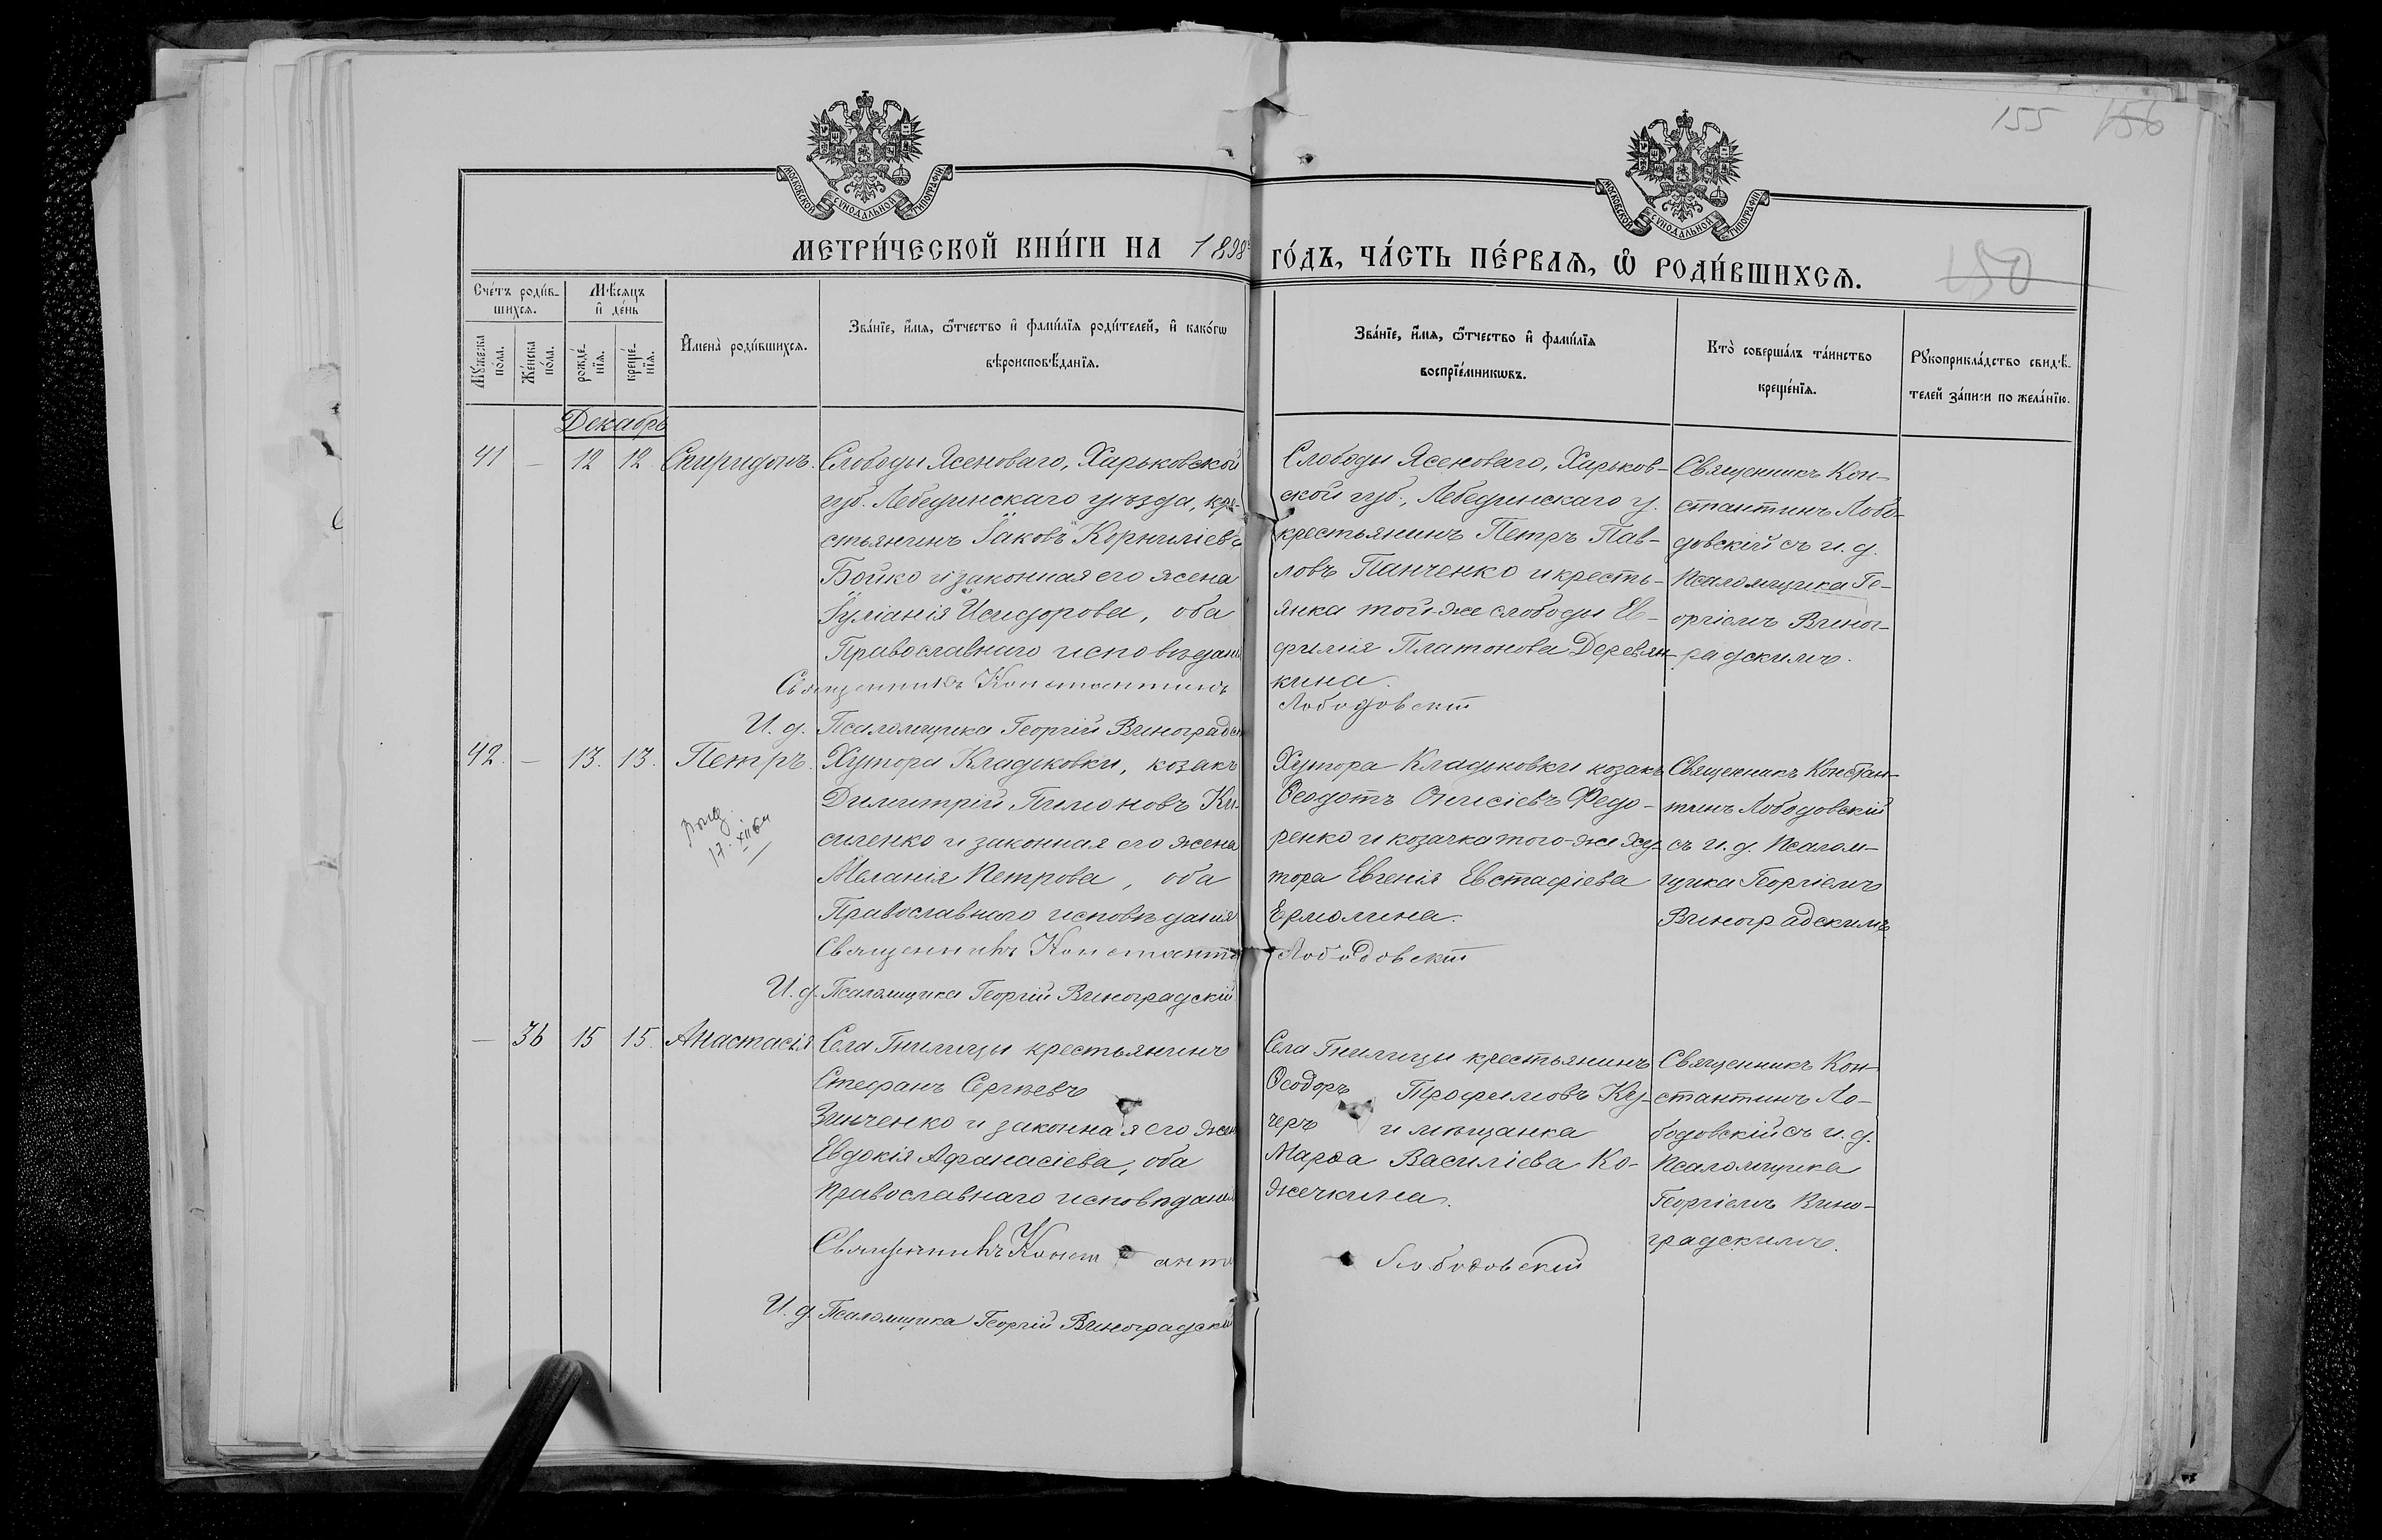 155 156
МОСКОВСКОЙ СѴНОДАЛЬНОЙ ТИПОГРАФІИ
МОСКОВСКОЙ СѴНОДАЛЬНОЙ ТИПОГРАФІИ
МЕТРИ́ЧЕСКОЙ КНИ́ГИ НА 1898 ГО́ДЪ, ЧА́СТЬ ПЕ́РВАѦ, Ѡ҆ РОДИ́ВШИХСѦ.
150
Сче́тъ роди́в-
шихсѧ.
Мꙋ́жеска
по́ла.
Же́нска
по́ла.
Мѣ́сѧцъ
и҆ де́нь
рожде́-
нїѧ.
креще́-
нїѧ.
И҆мена̀ роди́вшихсѧ.
Зва́нїе, и҆́мѧ, ѻ҆́тчество и҆ фами́лїѧ роди́телей, и҆ како́гѡ
вѣроисповѣ́данїѧ.
Зва́нїе, и҆́мѧ, ѻ҆́тчество и҆ фами́лїѧ
воспрїе́мникѡвъ.
Кто̀ соверша́лъ та́инство
креще́нїѧ.
Рꙋкоприкла́дство свидѣ́-
телей за́писи по жела́нїю.
Декабрь
41 — 12 12 Спиридонъ.
Слободы Ясеноваго, Харьковской
губ. Лебединскаго уѣзда, кре-
стьянинъ Іаковъ Корниліевъ
Бойко и законная его жена
Іуліанія Исидорова, оба
Православнаго исповѣдані
Священникъ Константинъ
И. д. Псаломщика Георгій Виноградск
Слободы Ясеноваго, Харьков-
ской губ., Лебединскаго у.
крестьянинъ Петръ Пав-
ловъ Панченко и кресть-
янка той-же слободы Ев-
фимія Платонова Деревян-
кина.
Лободовскій
Священникъ Кон-
стантинъ Лобо-
довскій съ и. д.
Псаломщика Ге-
оргіемъ Виног-
радскимъ.
42. — 13. 13. Петръ.
17. XII
Хутора Кладьковки, козакъ
Димитрій Пимоновъ Ки-
силенко и законная его жена
Меланія Петрова, оба
Православнаго исповѣданія
Священникъ Константи
И. д. Псаломщика Георгій Виноградскій
Хутора Кладьковки козакъ
Ѳеодотъ Онисіевъ Федо-
ренко и козачка того-же ху-
тора Евгенія Евстафіева
Ермолина.
Лободовскій
Священникъ Констан-
тинъ Лободовскій
съ и. д. Псалом-
щика Георгіемъ
Виноградскимъ
— 36 15 15. Анастасія
Села Гнилицы крестьянинъ
Стефанъ Сергѣевъ
Зинченко и законная его жен
Евдокія Афанасіева, оба
православнаго исповѣдані
Священникъ Констант
И. д. Псаломщика Георгій Виноградскій
Села Гнилицы крестьянинъ
Ѳеодоръ Трофимовъ Ку-
черъ и мѣщанка
Марѳа Василіева Ко-
жечкина.
Лободовскій
Священникъ Кон-
стантинъ Ло-
бодовскій съ и. д.
Псаломщика
Георгіемъ Вино-
градскимъ.